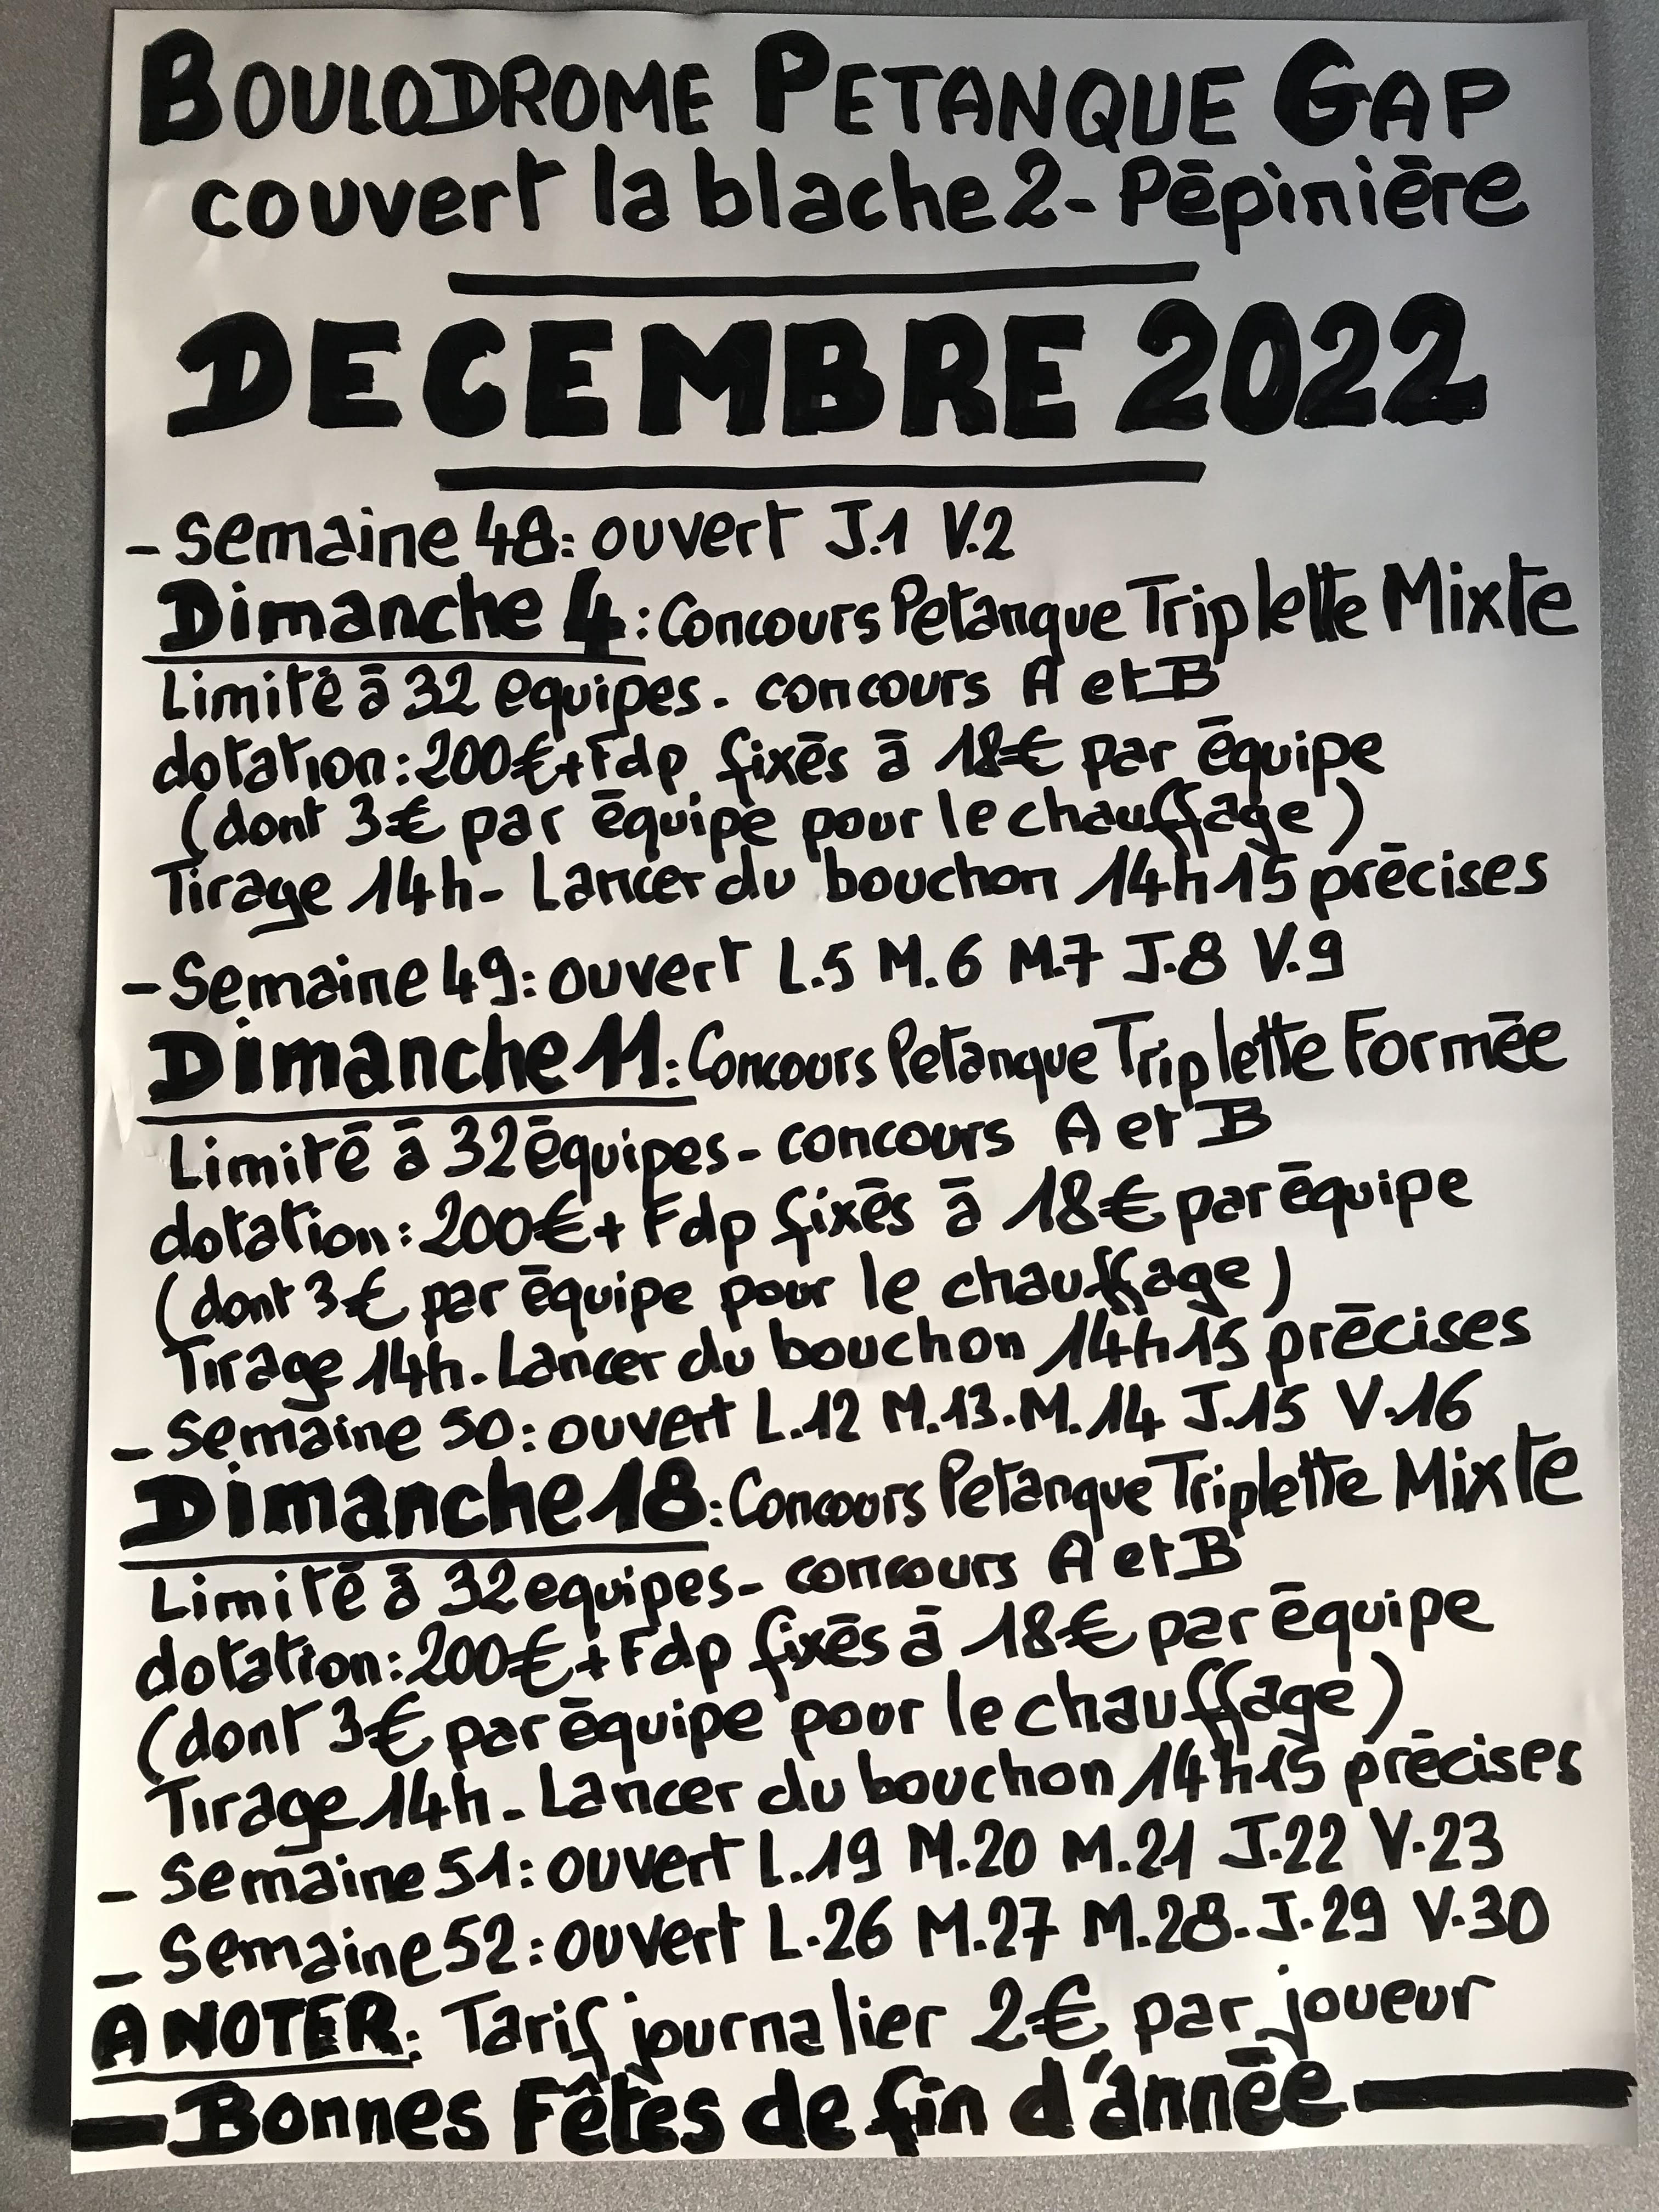 BOULODROME PETANQUE GAP
couvert la blache 2 - Pépinière
DECEMBRE 2022
- Semaine 48: ouvert J.1 V.2
Dimanche 4: Concours Petanque Triplette Mixte
Limité à 32 equipes. concours A et B
dotation: 200€ + Fdp fixés à 18€ par équipe
(dont 3€ par équipe pour le chauffage)
Tirage 14h - Lancer du bouchon 14h15 précises
- Semaine 49: ouvert L.5 M.6 M.7 J.8 V.9
Dimanche 11: Concours Petanque Triplette Formée
Limité à 32 équipes - concours A et B
dotation: 200€ + Fdp fixés à 18€ par équipe
(dont 3€ par équipe pour le chauffage)
Tirage 14h. Lancer du bouchon 14h15 précises
- Semaine 50: ouvert L.12 M.13. M.14 J.15 V.16
Dimanche 18: Concours Petanque Triplette Mixte
Limité à 32 equipes - concours A et B
dotation: 200€ + Fdp fixés à 18€ par équipe
(dont 3€ par équipe pour le chauffage)
Tirage 14h - Lancer du bouchon 14h15 précises
- Semaine 51: ouvert L.19 M.20 M.21 J.22 V.23
- Semaine 52: ouvert L.26 M.27 M.28. J.29 V.30
A NOTER: Tarif journalier 2€ par joueur
Bonnes Fêtes de fin d'année